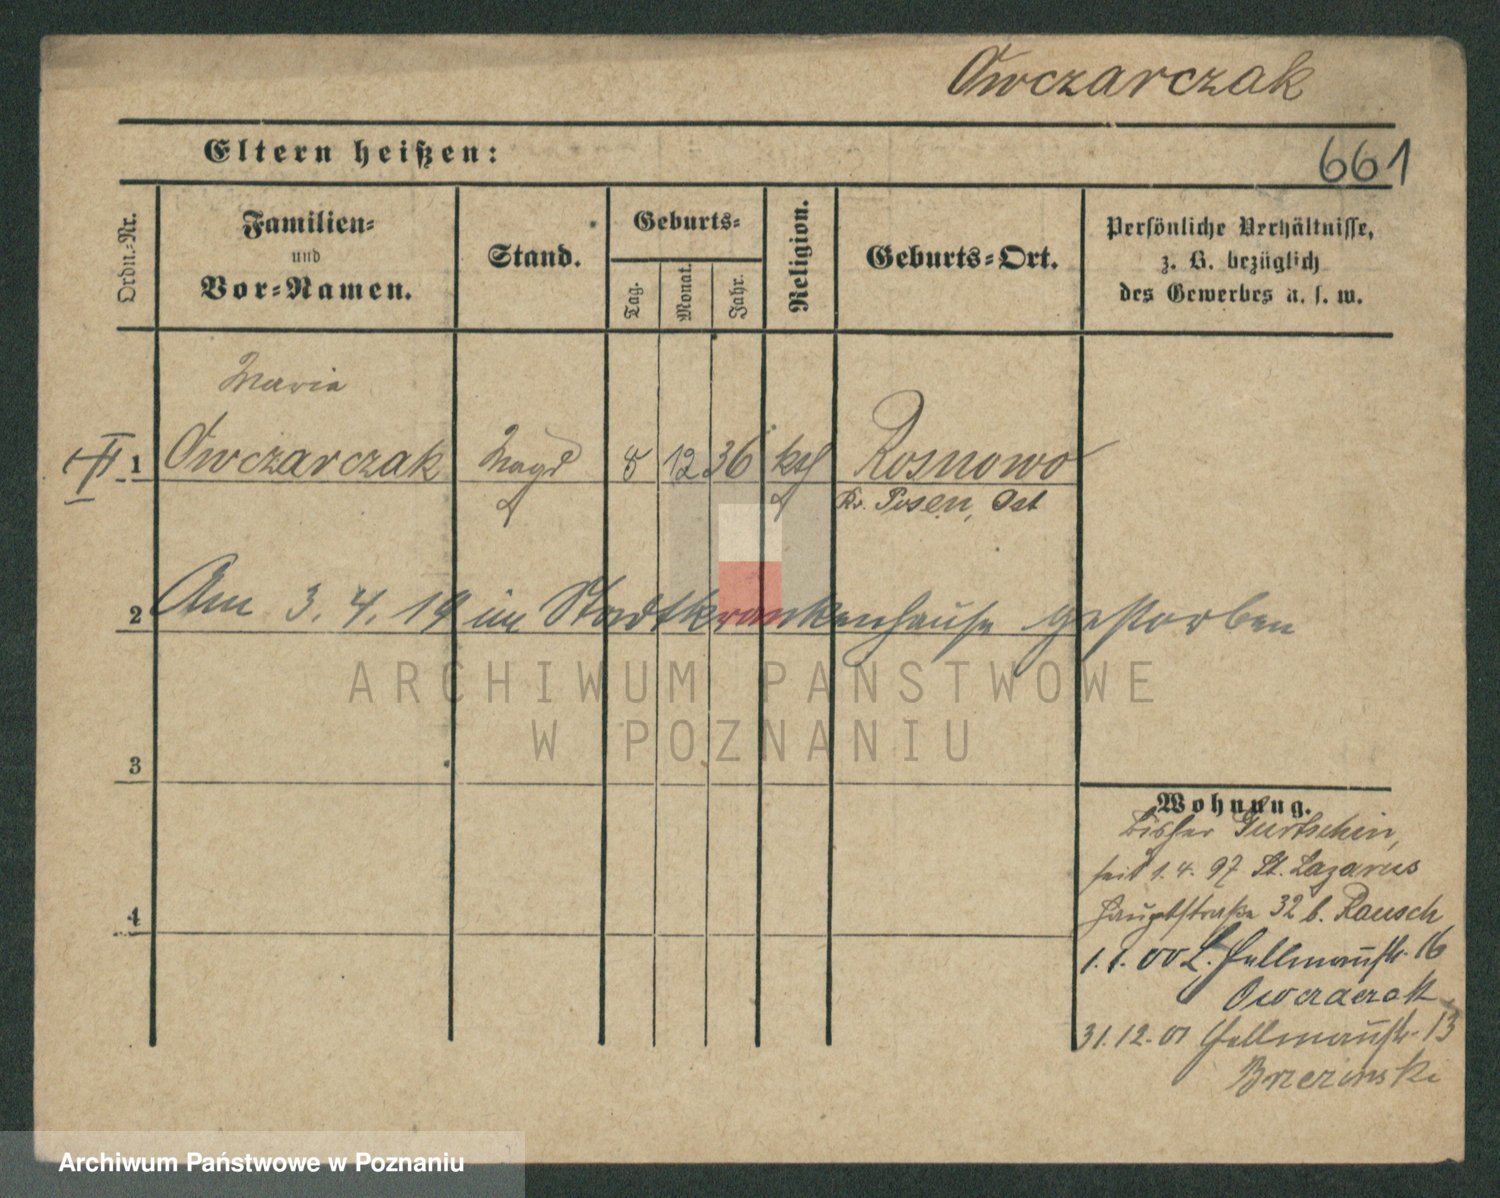 Owczarczak
Eltern heißen:
661
Ordn.-Nr.
Familien-
und
Vor-Namen.
Stand.
Geburts-
Tag.
Monat.
Jahr.
Religion.
Geburts-Ort.
Persönliche Verhältnisse,
z. B. bezüglich
des Gewerbes u. s. w.
Maria
1 Owczarczak Magd 5 12 36 kth Rosnowo
Kr. Posen, Ost
2 Am 3. 4. 14 im Stadtkrankenhause gestorben
ARCHIWUM PAŃSTWOWE
W POZNANIU
3
Wohnung.
bisher Gurtschin,
seit 1. 4. 97 St. Lazarus
Hauptstraße 32 b. Rausch
1. 1. 00 L. Hellmannstr. 16
Owczarczak
4
31. 12. 01 Hellmannstr. 13
Brzezinski
Archiwum Państwowe w Poznaniu